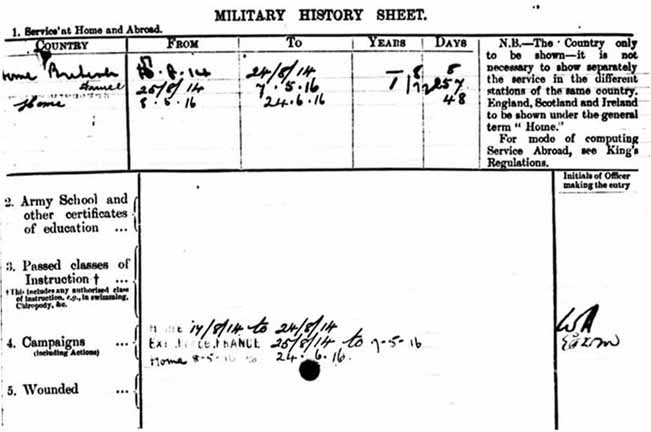 MILITARY HISTORY SHEET.
1. Service at Home and Abroad.
COUNTRY FROM TO YEARS DAYS
Home 8.14 24/8/14 — 8
25/8/14 7.5.16 1 257
Home 8.5.16 24.6.16 48
N.B.—The Country only
to be shown—it is not
necessary to show separately
the service in the different
stations of the same country.
England, Scotland and Ireland
to be shown under the general
term "Home."
For mode of computing
Service Abroad, see King's
Regulations.
Initials of Officer
making the entry
2. Army School and
other certificates
of education ...
3. Passed classes of
Instruction † ...
† This includes any authorised class
of instruction, e.g., in swimming,
Chiropody, &c.
4. Campaigns ...
(including Actions)
Home 17/8/14 to 24/8/14
FRANCE 25/8/14 to 7-5-16
Home 8-5-16 to 24.6.16.
5. Wounded ...